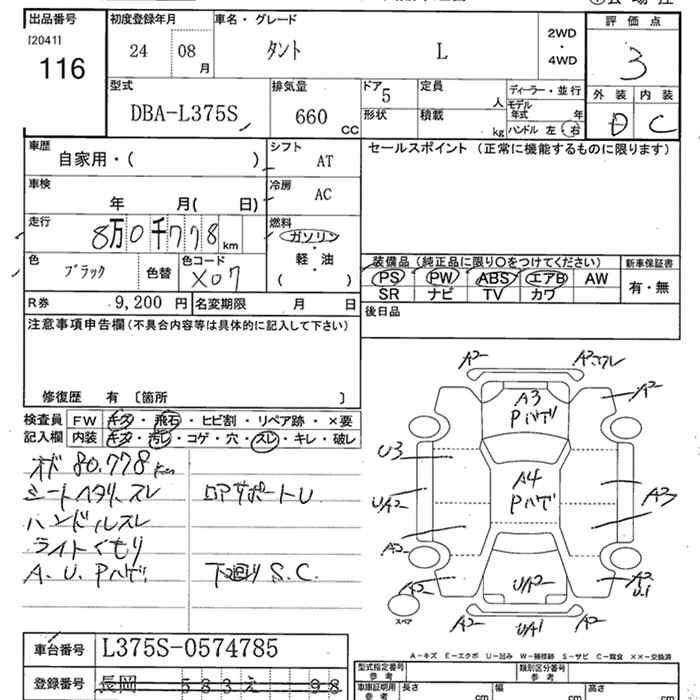 出品番号
[2041]
116
初度登録年月
24 08 月
車名・グレード
タント L
2WD
・
4WD
評価点
3
型式
DBA-L375S
排気量
660 CC
ドア 5
形状
定員 人
積載 kg
ディーラー・並行
モデル年式 年
ハンドル 左・右
外装 内装
D C
車歴
自家用・( )
シフト AT
セールスポイント (正常に機能するものに限ります)
車検
年 月( 日)
冷房 AC
走行
8万0千778 km
燃料
ガソリン
・
軽・油
( )
色 ブラック 色替
色コード X07
装備品(純正品に限り○をつけてください)
PS PW ABS エアB AW
SR ナビ TV カワ
新車保証書
有・無
R券 9,200 円 名変期限 月 日
後日品
注意事項申告欄(不具合内容等は具体的に記入して下さい)
修復歴 有 〔箇所 〕
検査員記入欄
FW キズ・飛石・ヒビ割・リペア跡・×要
内装 キズ・汚レ・コゲ・穴・スレ・キレ・破レ
オド 80.778km
シートヘタリ、スレ ロアサポートU
ハンドルスレ
ライトくもり
A.U.Pハゲ 下廻りS.C.
A2 A2
A3
Pハゲ
A2
U3
A4
Pハゲ
UA2
A3
A2
A2
UA2
A2
U1
スペア
A2 UA1 A2
A-キズ E-エクボ U-凹み W-補修跡 S-サビ C-腐食 ××-交換済
車台番号 L375S-0574785
登録番号 長岡 583え 98
型式指定番号
参考
類別区分番号
参考
車庫証明用
参考
長さ cm
幅 cm
高さ cm